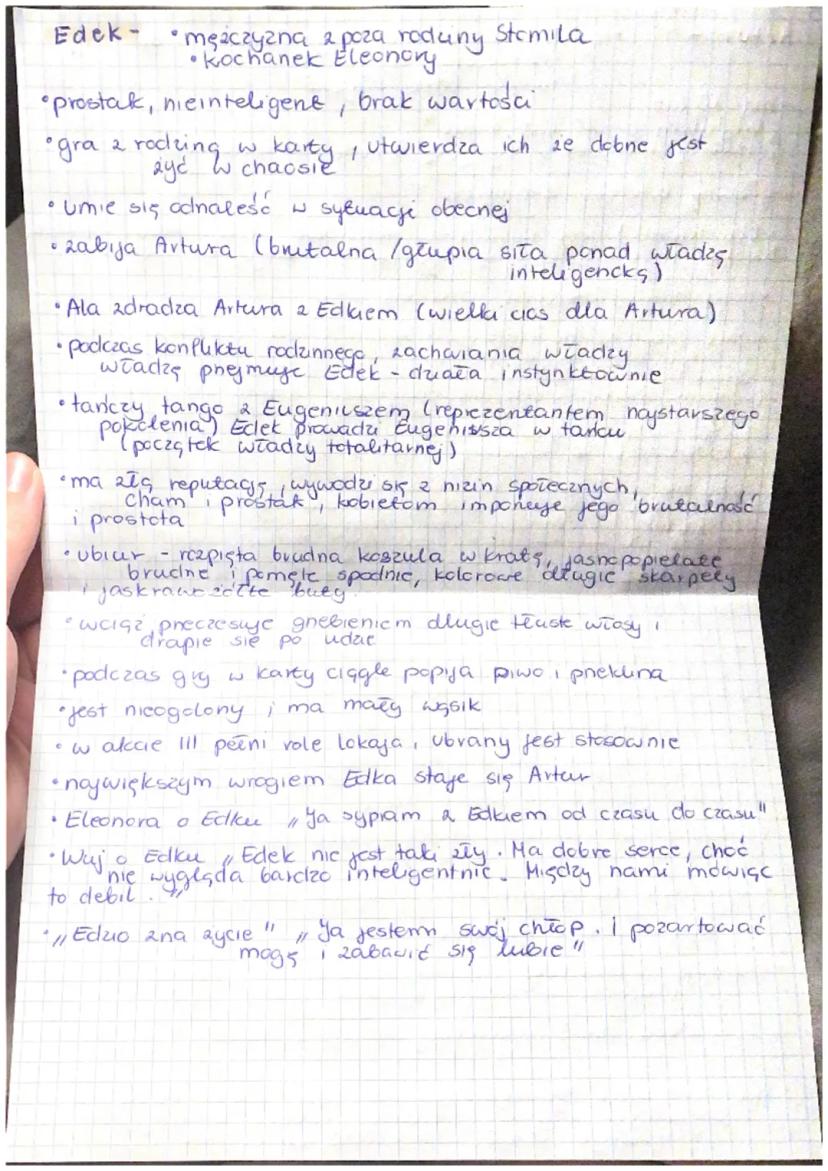 Edek - • mężczyzna z poza rodziny Stomila
• kochanek Eleonory
• prostak, nieinteligent, brak wartości
• gra z rodziną w karty, utwierdza ich że dobrze jest
żyć w chaosie
• umie się odnaleść w sytuacji obecnej
• zabija Artura (brutalna /głupia siła ponad władzę
inteligencką)
• Ala zdradza Artura z Edkiem (wielki cios dla Artura)
• podczas konfliktu rodzinnego, zachwiania władzy
władzę przejmuje Edek - działa instynktownie
• tańczy tango z Eugeniuszem (reprezentantem najstarszego
pokolenia) Edek prowadzi Eugeniusza w tańcu
(początek władzy totalitarnej)
• ma złą reputację, wywodzi się z nizin społecznych,
cham i prostak, kobietom imponuje jego brutalność
i prostota
• ubiór - rozpięta brudna koszula w kratę, jasnopopielate
brudne i pomięte spodnie, kolorowe długie skarpety
i jaskrawożółte buty
• wciąż przeczesuje grzebieniem długie tłuste włosy i
drapie się po udzie
• podczas gry w karty ciągle popija piwo i przeklina
• jest nieogolony i ma mały wąsik
• w akcie III pełni role lokaja, ubrany jest stosownie
• największym wrogiem Edka staje się Artur
• Eleonora o Edku „Ja sypiam z Edkiem od czasu do czasu"
• Wuj o Edku „Edek nie jest taki zły. Ma dobre serce, choć
nie wygląda bardzo inteligentnie. Między nami mówiąc
to debil."
• „Edzio zna życie" „Ja jestem swój chłop. i pożartować
mogę i zabawić się lubię"